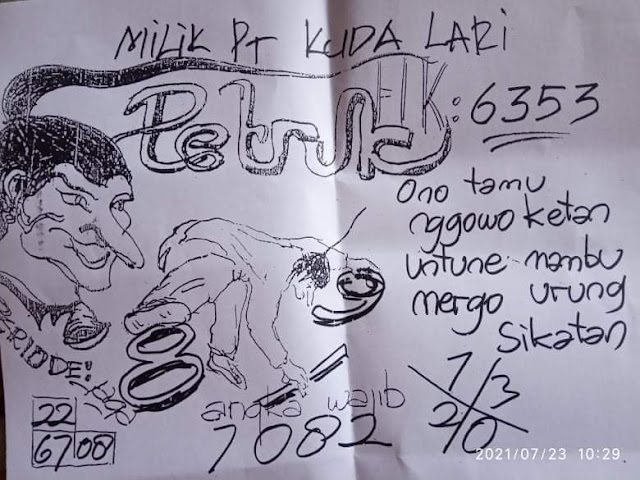 MILIK PT KUDA LARI
Petruk
FIK: 6353
Ono tamu
nggowo ketan
untune mambu
mergo urung
sikatan
PERIODE:
8
9
22
67 08
angka wajib
7082
7/3
2/0
2021/07/23 10:29